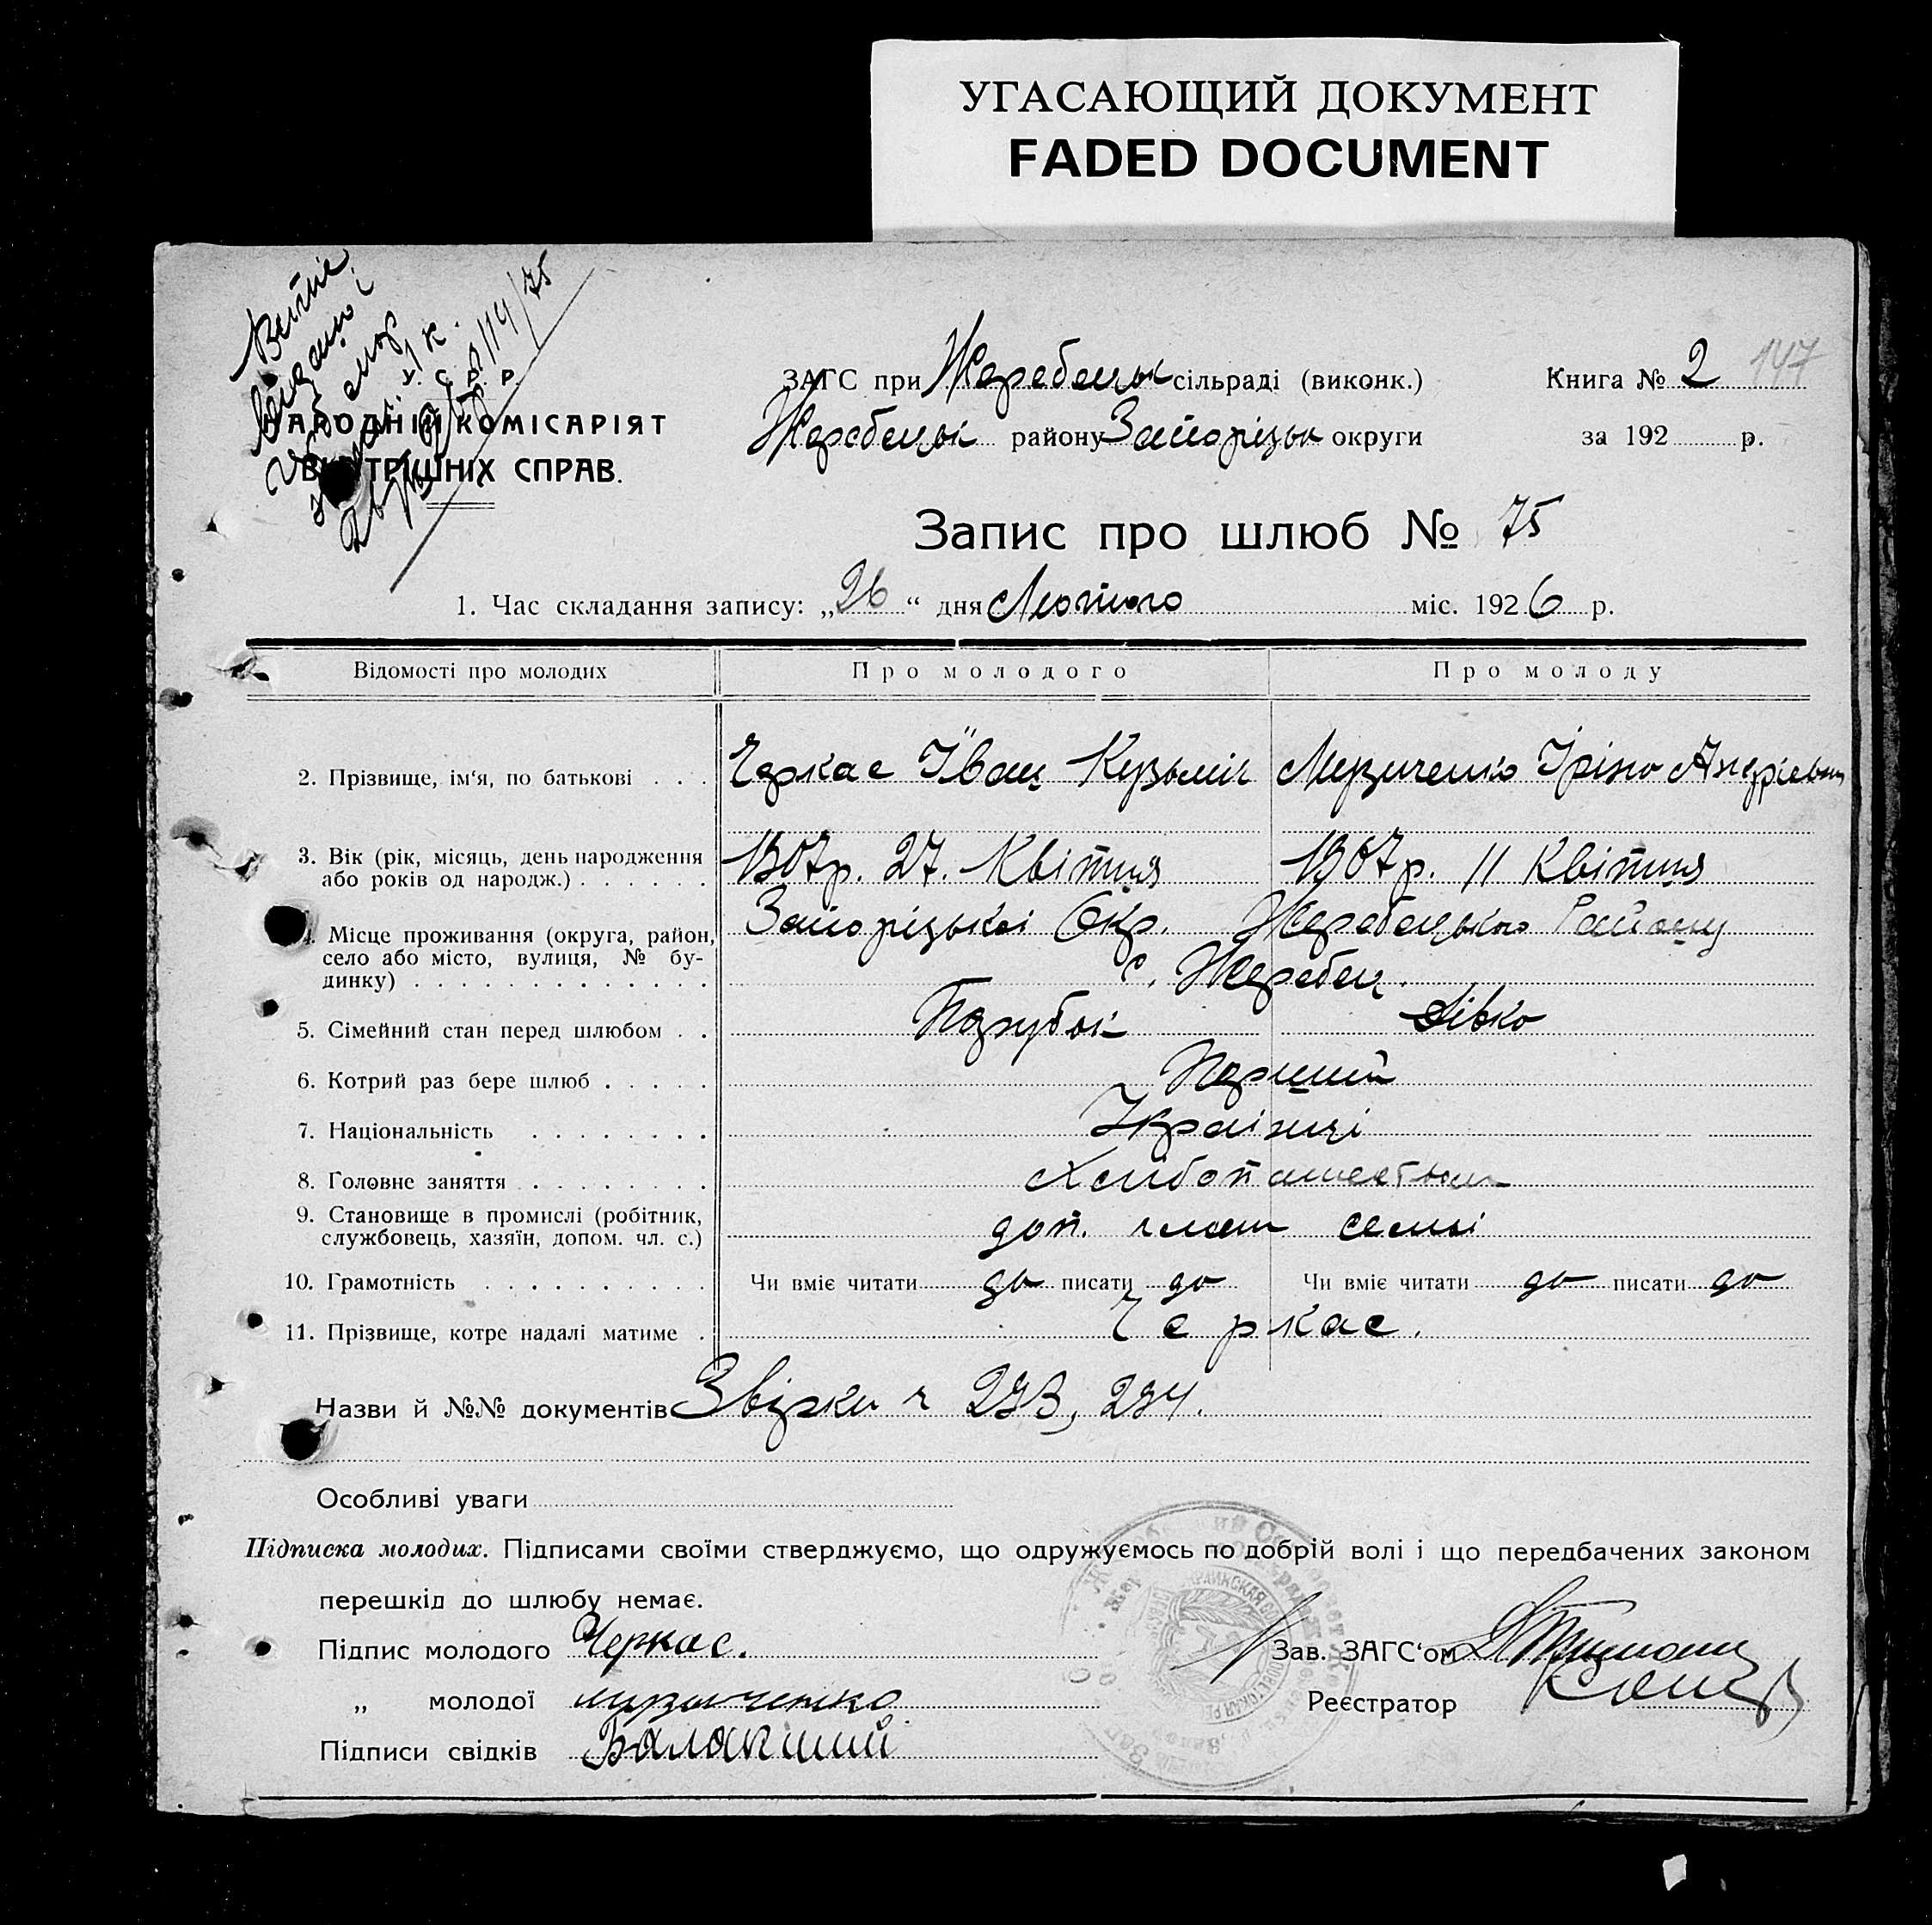 УГАСАЮЩИЙ ДОКУМЕНТ
FADED DOCUMENT
Витяг
видано
У. С. Р. Р.
НАРОДНІЙ КОМІСАРІЯТ
ВНУТРІШНІХ СПРАВ.
ЗАГС при Жеребецьк сільраді (виконк.)
Книга № 2 147
Жеребецьк району Запорізьк округи
за 192 р.
Запис про шлюб № 75
1. Час складання запису: „26“ дня Лютого міс. 1926 р.
Відомості про молодих Про молодого Про молоду
2. Прізвище, ім‘я, по батькові . . . Черкас Іван Кузьміч Музиченко Іріна Андрієвна
3. Вік (рік, місяць, день народження
або років од народж.) . . . . . . 1907р. 27. Квітня 1907 р. 11 Квітня
4. Місце проживання (округа, район, Запорізької Окр. Жеребецького Району
село або місто, вулиця, № бу-
динку) . . . . . . . . . . . . . с. Жеребец.
5. Сімейний стан перед шлюбом . . Парубок Дівка
6. Котрий раз бере шлюб . . . . . Перший
7. Національність . . . . . . . Українці
8. Головне заняття . . . . . . . .
9. Становище в промислі (робітник,
службовець, хазяїн, допом. чл. с.) доп. член семьі
10. Грамотність . . . . . . . . . . Чи вміє читати да писати да Чи вміє читати да писати да
11. Прізвище, котре надалі матиме . Черкас.
Назви й №№ документів Звірки ч 293, 294.
Особливі уваги
Підписка молодих. Підписами своїми стверджуємо, що одружуємось по добрій волі і що передбачених законом
перешкід до шлюбу немає.
Підпис молодого Черкас.
Зав. ЗАГС‘ом
„ молодої музиченко
Реєстратор
Підписи свідків